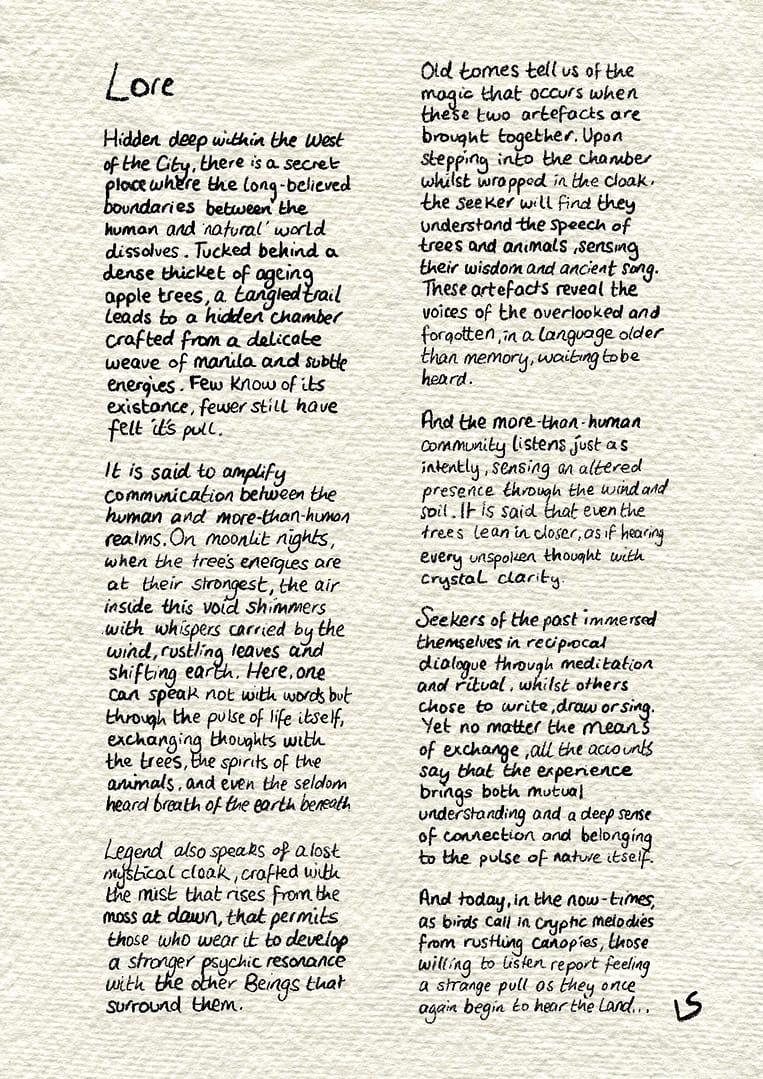 Lore
Hidden deep within the West
of the City, there is a secret
place where the long-believed
boundaries between the
human and 'natural' world
dissolves. Tucked behind a
dense thicket of ageing
apple trees, a tangled trail
leads to a hidden chamber
crafted from a delicate
weave of manila and subtle
energies. Few know of its
existance, fewer still have
felt it's pull.
It is said to amplify
communication between the
human and more-than-human
realms. On moonlit nights,
when the tree's energies are
at their strongest, the air
inside this void shimmers
with whispers carried by the
wind, rustling leaves and
shifting earth. Here, one
can speak not with words but
through the pulse of life itself,
exchanging thoughts with
the trees, the spirits of the
animals, and even the seldom
heard breath of the earth beneath
Legend also speaks of a lost
mystical cloak, crafted with
the mist that rises from the
moss at dawn, that permits
those who wear it to develop
a stronger psychic resonance
with the other Beings that
surround them.
Old tomes tell us of the
magic that occurs when
these two artefacts are
brought together. Upon
stepping into the chamber
whilst wrapped in the cloak,
the seeker will find they
understand the speech of
trees and animals, sensing
their wisdom and ancient song.
These artefacts reveal the
voices of the overlooked and
forgotten, in a language older
than memory, waiting to be
heard.
And the more-than-human
community listens just as
intently, sensing an altered
presence through the wind and
soil. It is said that even the
trees lean in closer, as if hearing
every unspoken thought with
crystal clarity.
Seekers of the past immersed
themselves in reciprocal
dialogue through meditation
and ritual, whilst others
chose to write, draw or sing.
Yet no matter the means
of exchange, all the accounts
say that the experience
brings both mutual
understanding and a deep sense
of connection and belonging
to the pulse of nature itself.
And today, in the now-times,
as birds call in cryptic melodies
from rustling canopies, those
willing to listen report feeling
a strange pull as they once
again begin to hear the Land...
LS